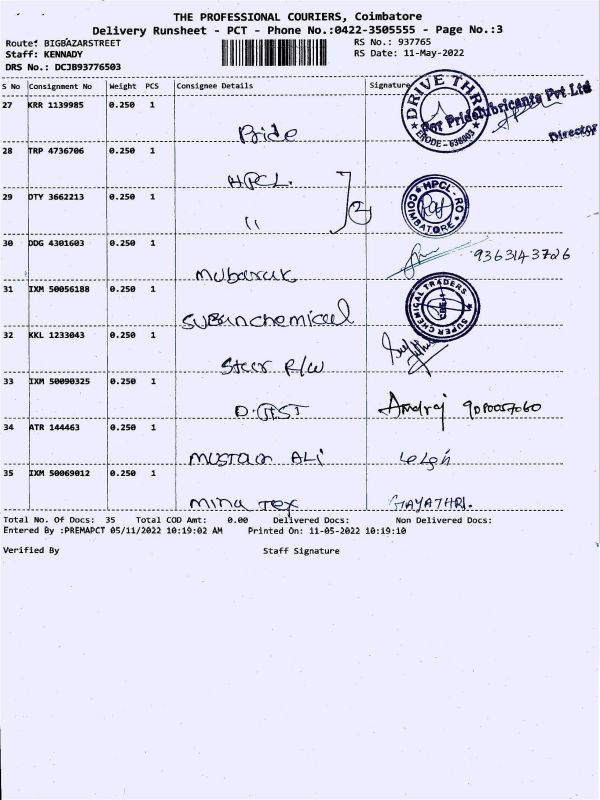 THE PROFESSIONAL COURIERS, Coimbatore
Delivery Runsheet - PCT - Phone No.:0422-3505555 - Page No.:3
Route: BIGBAZARSTREET RS No.: 937765
Staff: KENNADY RS Date: 11-May-2022
DRS No.: DCJB93776503
S No Consignment No Weight PCS Consignee Details Signature
27 KRR 1139985 0.250 1
Pride
DRIVE THR
ERODE - 638003
For Pridelubricants Pvt Ltd
Director
28 TRP 4736706 0.250 1
HPCL.
29 DTY 3662213 0.250 1
" 2
HPCL-RO
COIMBATORE
30 DDG 4301603 0.250 1
Mubarak 9363143726
31 IXM 50056188 0.250 1
Subanchemical
SUPER CHEMICAL TRADERS
32 KKL 1233043 0.250 1
Steer R/W
33 IXM 50090325 0.250 1
34 ATR 144463 0.250 1
ALi
35 IXM 50069012 0.250 1
Mina Tex GAYATHRI.
Total No. Of Docs: 35 Total COD Amt: 0.00 Delivered Docs: Non Delivered Docs:
Entered By :PREMAPCT 05/11/2022 10:19:02 AM Printed On: 11-05-2022 10:19:10
Verified By Staff Signature